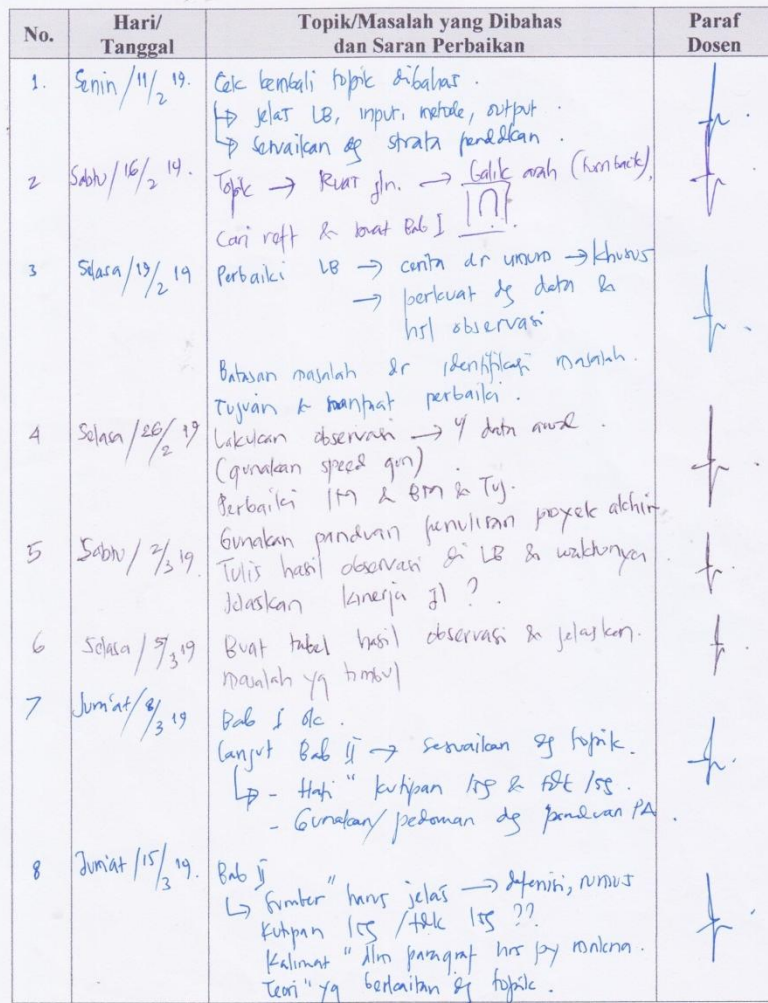 No. Hari/ Tanggal Topik/Masalah yang Dibahas dan Saran Perbaikan Paraf Dosen
1. Senin / 11/2 19. Cek kembali topik dibahas.
↳ jelas LB, input, metode, output.
↳ sesuaikan dg strata pendidkan.
2 Sabtu / 16/2 19. Topik → Ruas jln. → Balik arah (turn back),
Cari reff & buat Bab I
3 Selasa / 19/2 19 Perbaiki LB → cerita dr umum → khusus
→ perkuat dg data &
hsl observasi
Batasan masalah dr identifikasi masalah.
Tujuan & manfaat perbaiki.
4 Selasa / 26/2 19 Lakukan observasi → u/ data awal.
(gunakan speed gun).
Perbaiki IM & BM & Tuj.
Gunakan panduan penulisan proyek akhir
5 Sabtu / 2/3 19 Tulis hasil observasi di LB & waktunya
Jelaskan kinerja jl ?
6 Selasa / 5/3 19 Buat tabel hasil observasi & jelaskan.
masalah yg timbul
7 Jum'at / 8/3 19 Bab I ok.
Lanjut Bab II → sesuaikan dg topik.
↳ - Hati " kutipan lsg & tdk lsg.
- Gunakan/ pedoman dg panduan PA.
8 Jum'at / 15/3 19. Bab II
↳ Sumber" harus jelas → defenisi, rumus
Kutipan lsg / tdk lsg ??
Kalimat " dlm paragraf hrs py makna.
Teori" yg berkaitan dg topik.